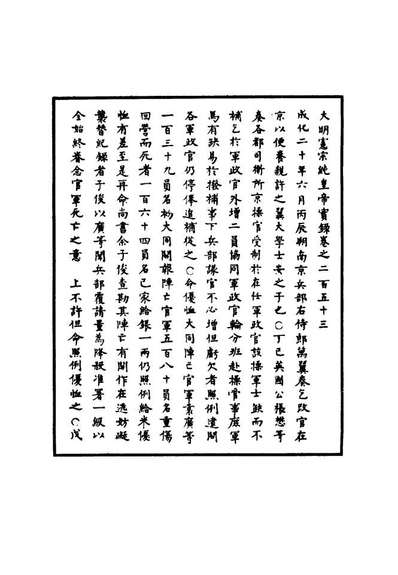 大明憲宗純皇帝實錄卷之二百五十三
成化二十年六月丙辰朔南京兵部右侍郎萬翼奏乞改官在
京以便養親許之翼大學士安之子也○丁巳英國公張懋等
奏各都司衛所京操官受制於在任軍政官該操軍士缺而不
補乞於軍政官外增二員協同軍政官輪分班赴操官事庶軍
馬有缺易於撥補事下兵部議官不必增但虧欠者照例遣問
各軍政官仍停俸追補從之○命優恤大同陣亡官軍袁廣等
一百三十九員名初大同開報陣亡官軍五百八十員名重傷
回營而死者一百六十四員名已家給銀一兩仍照例給米優
恤有差至是再命尚書余子俊查勘其陣亡有開作在逃妨礙
襲替紀錄者子俊以廣等聞兵部覆請量為降級准署一級以
全始終眷念官軍死亡之意　上不許但命照例優恤之○戊